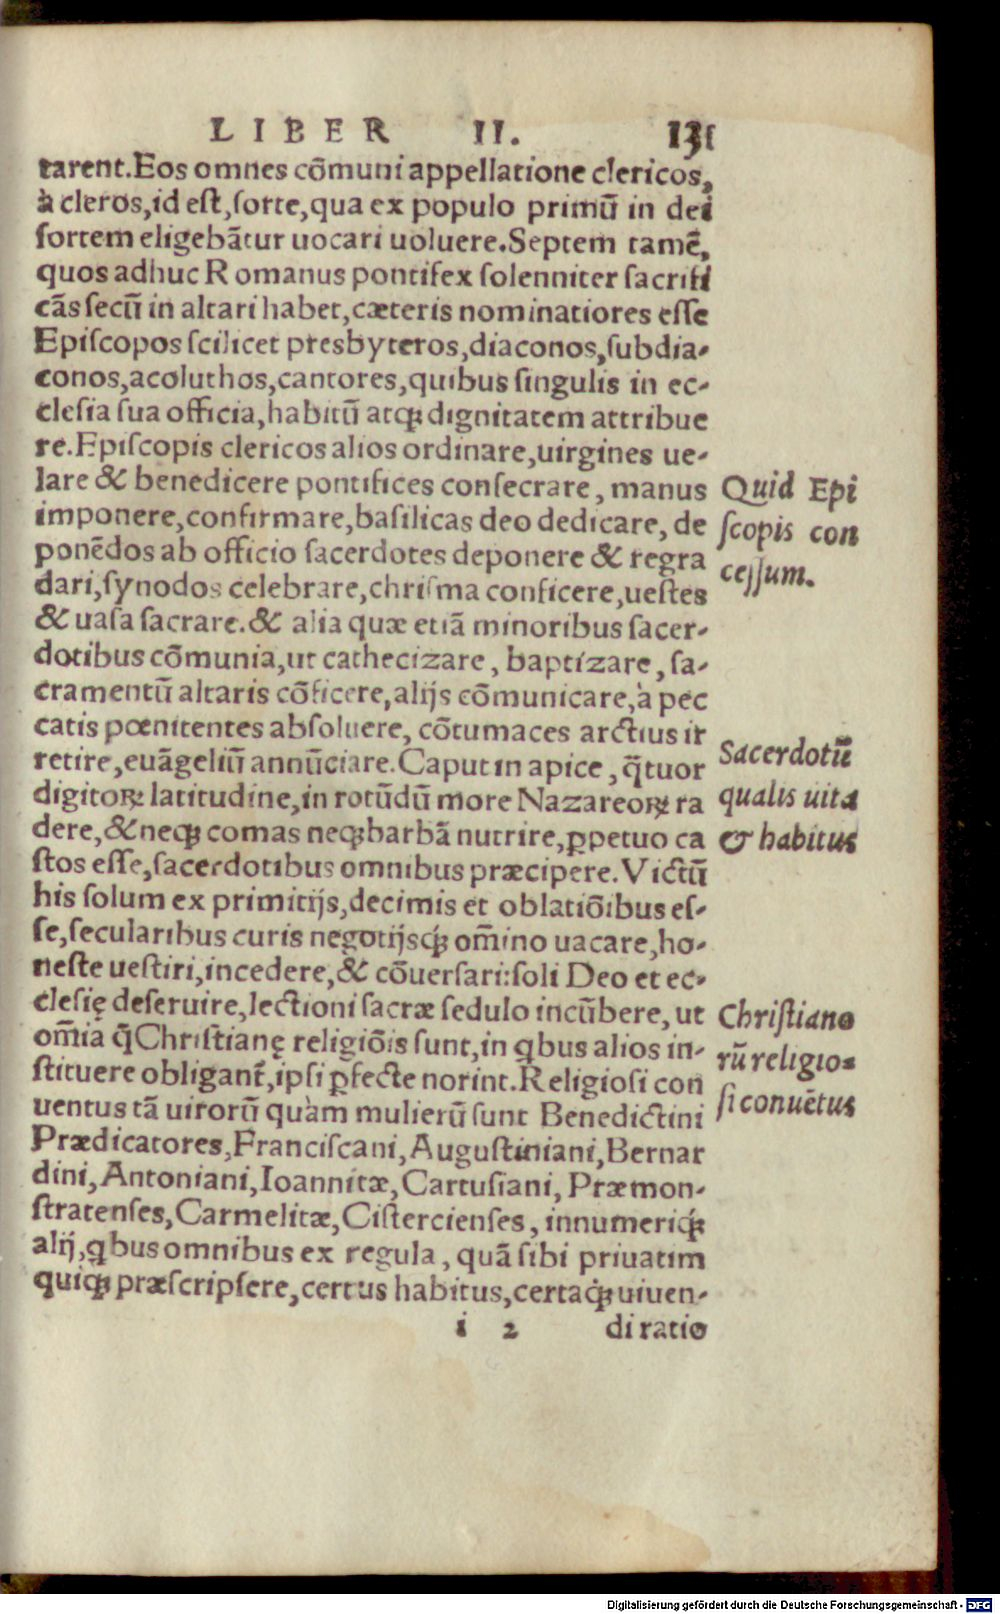 LIBER II. 131
tarent. Eos omnes cõmuni appellatione clericos,
à cleros, id est, sorte, qua ex populo primũ in dei
sortem eligebãtur uocari uoluere. Septem tamẽ,
quos adhuc Romanus pontifex solenniter sacrifi
cãs secũ in altari habet, cæteris nominatiores esse
Episcopos scilicet presbyteros, diaconos, subdia-
conos, acoluthos, cantores, quibus singulis in ec-
clesia sua officia, habitũ atq́ꝫ dignitatem attribue
re. Episcopis clericos alios ordinare, uirgines ue-
lare & benedicere pontifices consecrare, manus
imponere, confirmare, basilicas deo dedicare, de
ponẽdos ab officio sacerdotes deponere & regra
dari, synodos celebrare, chrisma conficere, uestes
& uasa sacrare. & alia quæ etiã minoribus sacer-
dotibus cõmunia, ut cathecizare, baptizare, sa-
cramentũ altaris cõficere, alijs cõmunicare, à pec
catis pœnitentes absoluere, cõtumaces arctius ir
retire, euãgeliũ annũciare. Caput in apice, q̃tuor
digitoꝝ latitudine, in rotũdũ more Nazareoꝝ ra
dere, & neqꝫ comas neqꝫ barbã nutrire, ꝑpetuo ca
stos esse, sacerdotibus omnibus præcipere. Victũ
his solum ex primitijs, decimis et oblatiõibus es-
se, secularibus curis negotijsq́ꝫ om̃ino uacare, ho-
neste uestiri, incedere, & cõuersari: soli Deo et ec-
clesię deseruire, lectioni sacræ sedulo incũbere, ut
om̃ia q̃ Christianę religiõis sunt, in qbus alios in-
stituere obligant̃, ipsi ꝑfecte norint. Religiosi con
uentus tã uirorũ quàm mulierũ sunt Benedictini
Prædicatores, Franciscani, Augustiniani, Bernar
dini, Antoniani, Ioannitæ, Cartusiani, Præmon-
stratenses, Carmelitæ, Cistercienses, innumeriq́ꝫ
alij, qbus omnibus ex regula, quã sibi priuatim
quiqꝫ præscripsere, certus habitus, certaq́ꝫ uiuen-
i 2 di ratio
Quid Epi
scopis con
cessum.
Sacerdotũ
qualis uita
& habitus
Christiano
rũ religio-
si conuẽtus
Digitalisierung gefördert durch die Deutsche Forschungsgemeinschaft - DFG